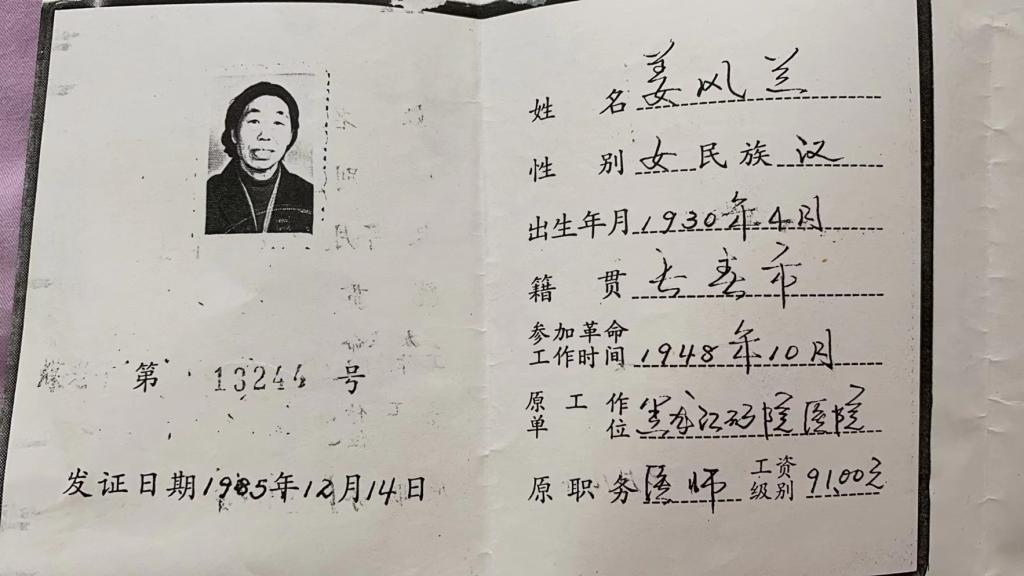 第 13244 号
发证日期1985年12月14日
姓 名 姜凤兰
性 别 女 民族 汉
出生年月 1930年4月
籍 贯 长春市
参加革命
工作时间 1948年10月
原 工 作
单 位 黑龙江 医院
原职务 医师 工资
级别 91.00元